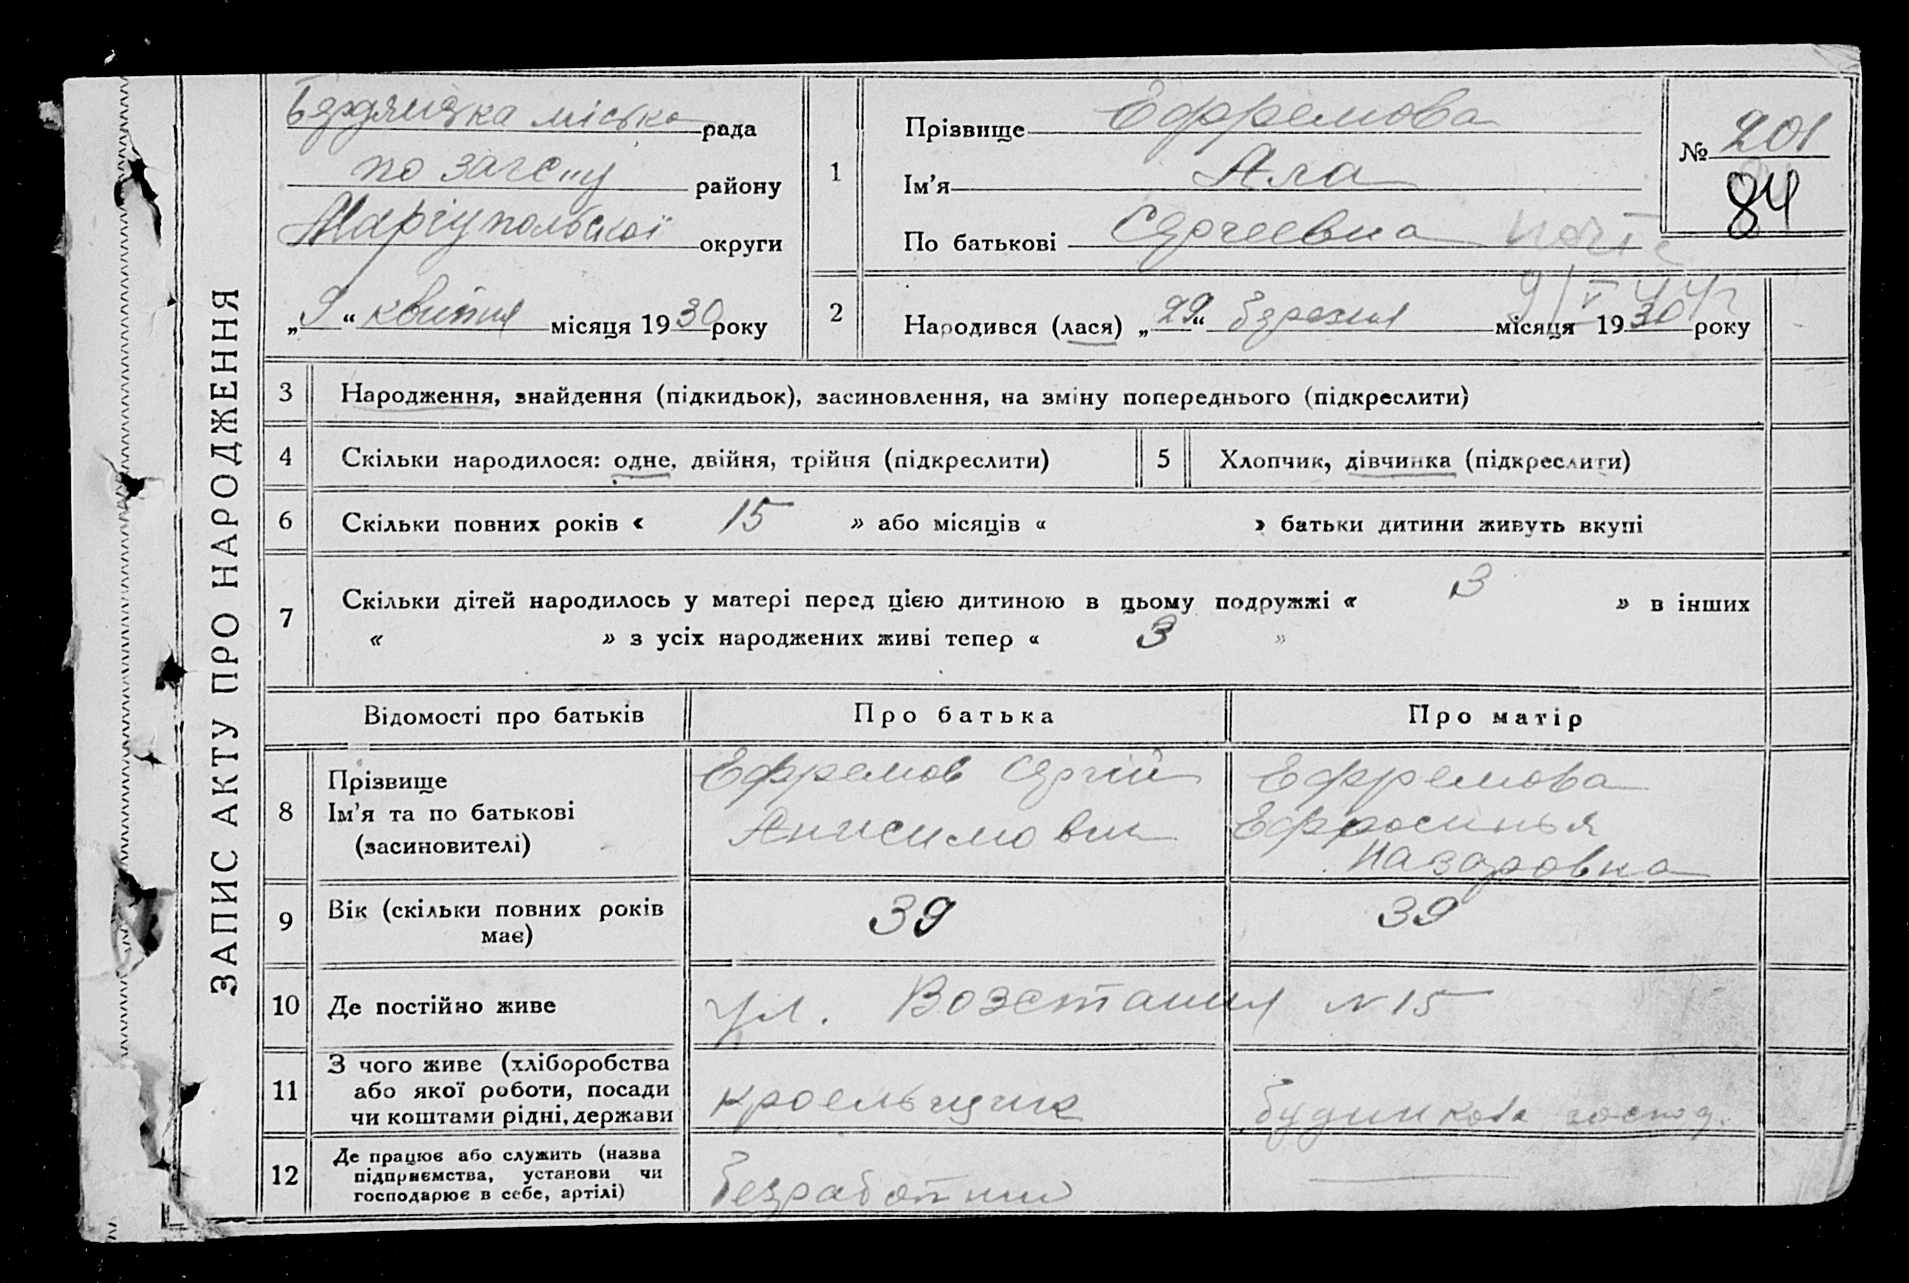 ЗАПИС АКТУ ПРО НАРОДЖЕННЯ
Бердянська міська рада
по загсу району
Маріупольської округи
„9“ квітня місяця 1930 року
1
Прізвище Ефремова
Ім'я Ала
По батькові Сергеевна
№ 201
84
2
Народився (лася) „29“ березня місяця 1930 року
3 Народження, знайдення (підкидьок), засиновлення, на зміну попереднього (підкреслити)
4 Скільки народилося: одне, двійня, трійня (підкреслити)
5 Хлопчик, дівчинка (підкреслити)
6 Скільки повних років « 15 » або місяців « » батьки дитини живуть вкупі
7 Скільки дітей народилось у матері перед цією дитиною в цьому подружжі « 3 » в інших
« » з усіх народжених живі тепер « 3 »
Відомості про батьків Про батька Про матір
8 Прізвище
Ім'я та по батькові
(засиновителі)
Ефремов Сергій
Анисимович
Ефремова
Ефросинья
Назаровна
9 Вік (скільки повних років
має)
39
39
10 Де постійно живе
ул. Возстания N 15
11 З чого живе (хліборобства
або якої роботи, посади
чи коштами рідні, держави
кроельщик
будинкова господ.
12 Де працює або служить (назва
підприємства, установи чи
господарює в себе, артілі)
безработний